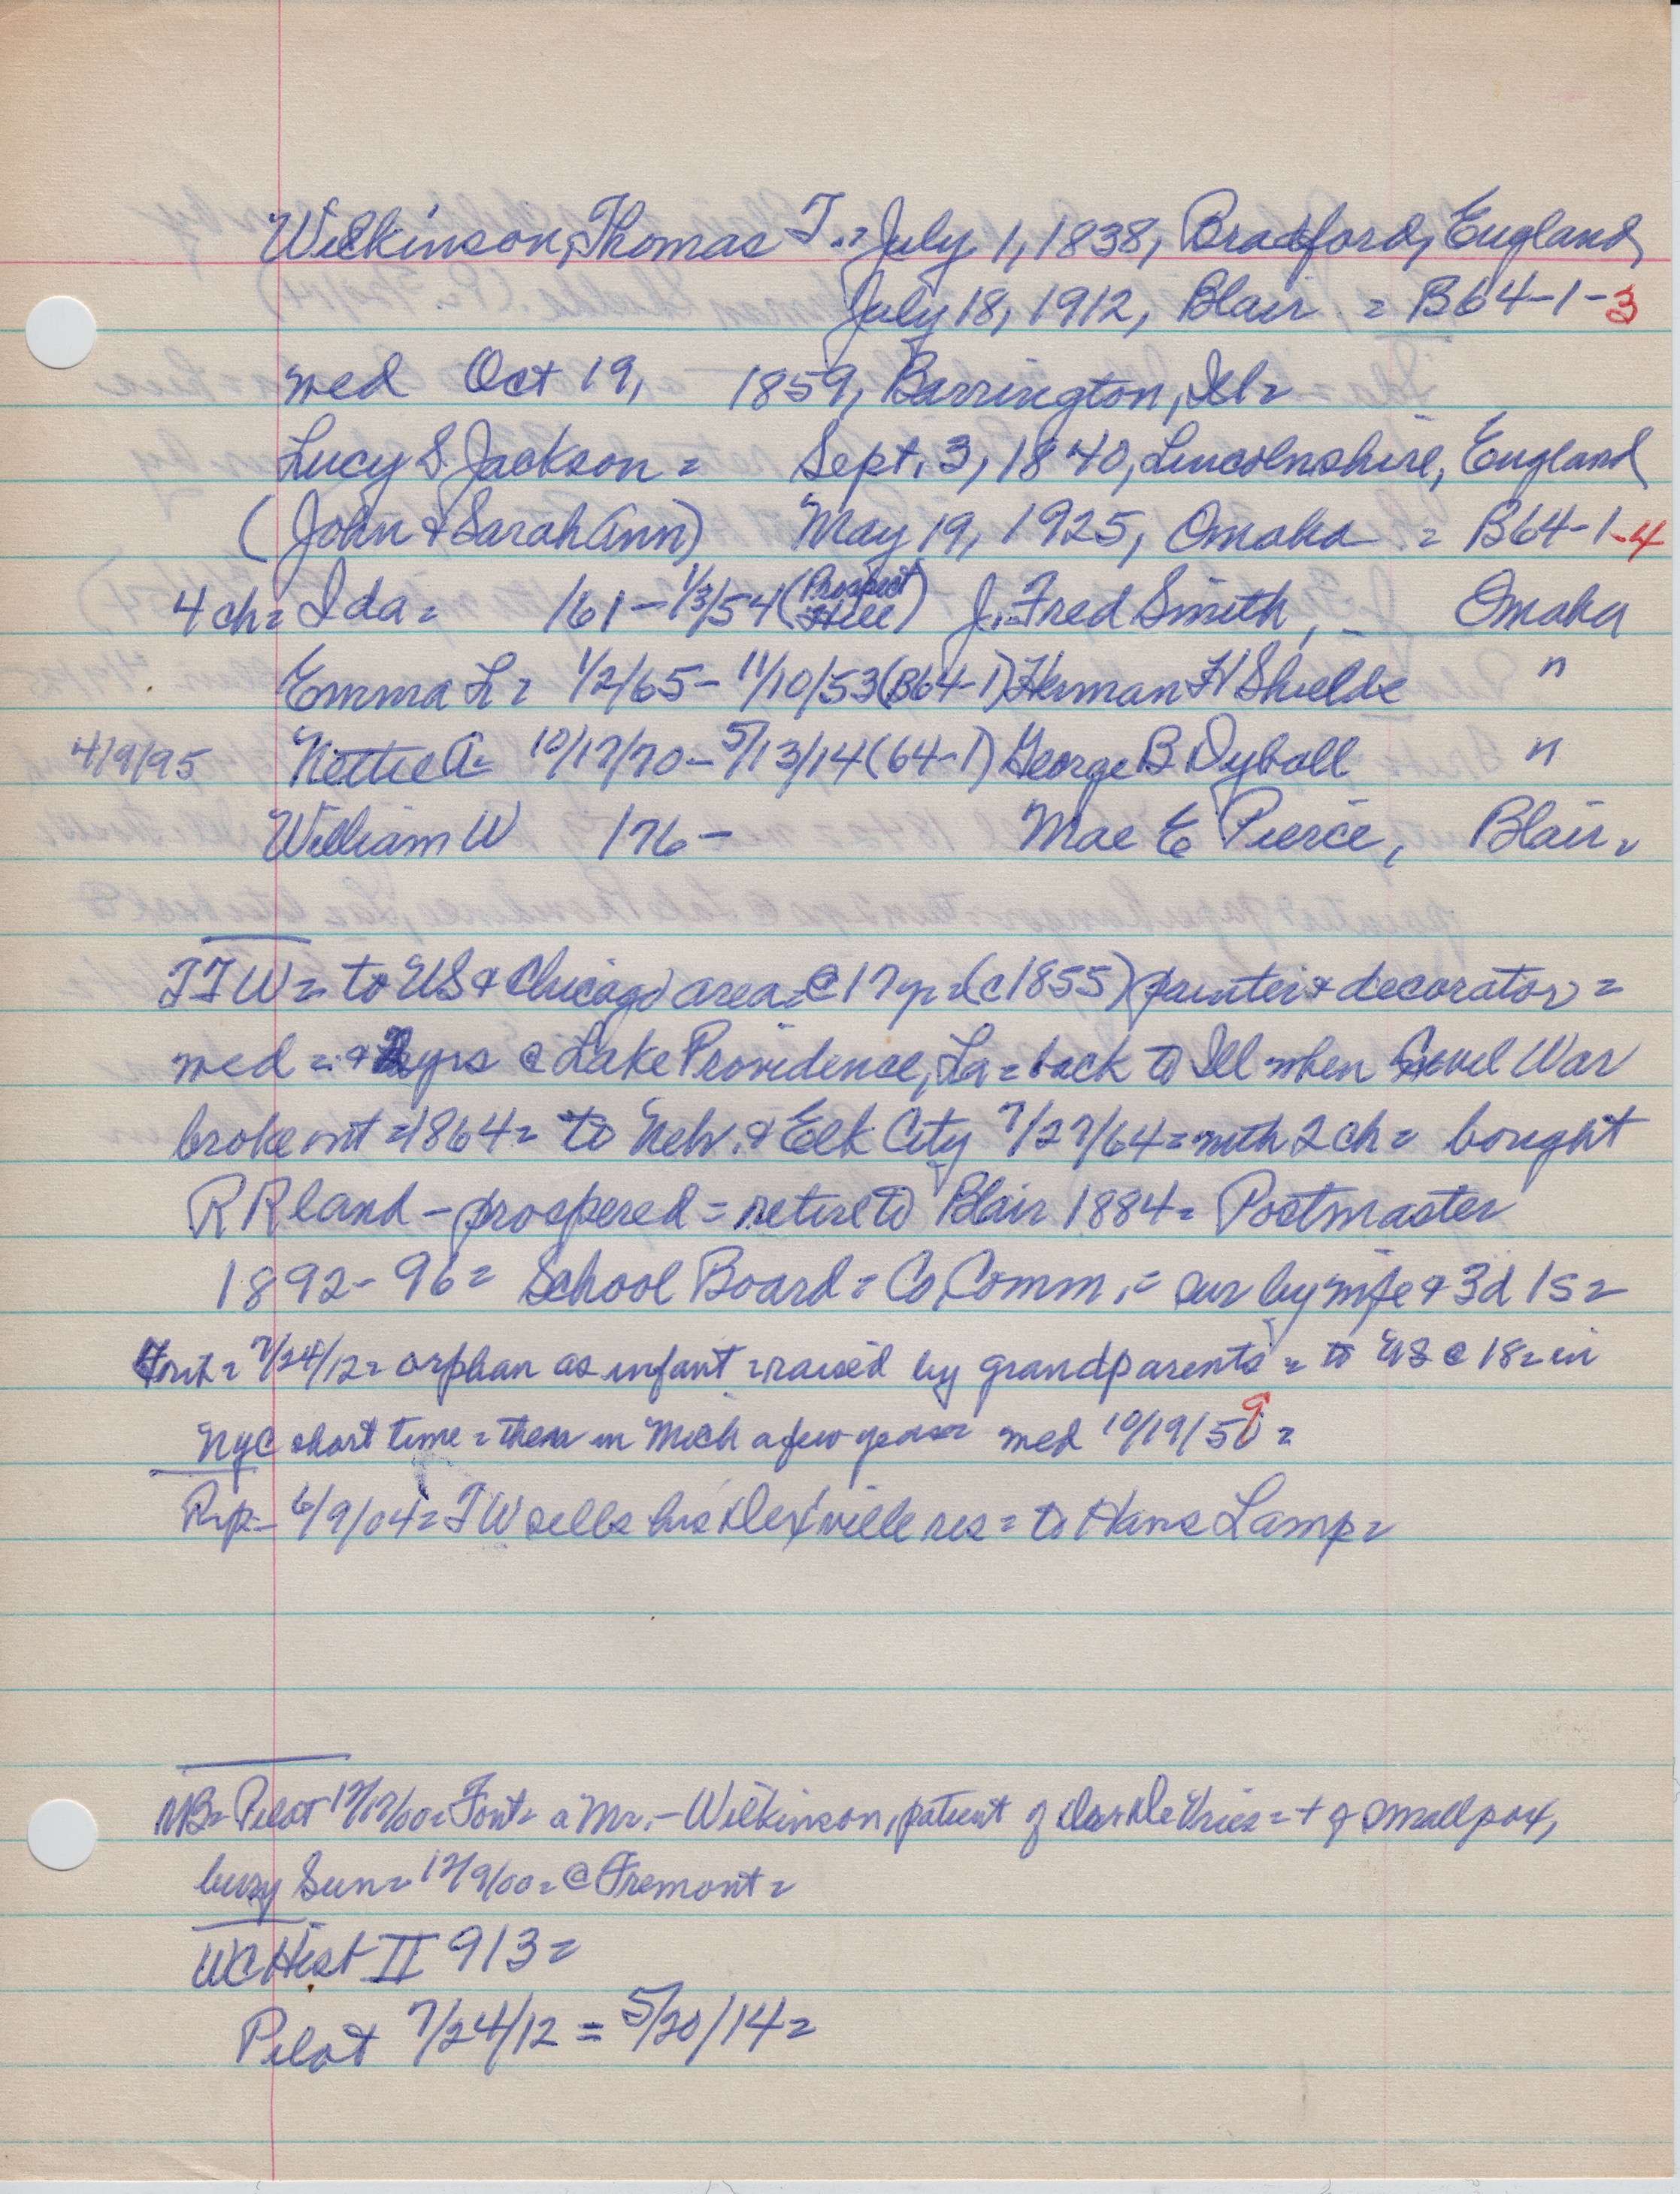 Wilkinson, Thomas T.= July 1, 1838, Bradford, England,
July 18, 1912, Blair = B64-1-3
med Oct 19, 1859, Barrington, Ill=
Lucy S. Jackson = Sept. 3, 1840, Lincolnshire, England
(John & Sarah Ann) May 19, 1925, Omaha = B64-1-4
4 ch= Ida= /61 - 1/3/54 (Prospect Hill) J. Fred Smith, Omaha
Emma L= 1/2/65 - 11/10/53 (B64-1) Herman H Shields "
4/9/95 Nettie A= 10/17/70 - 5/13/14 (64-1) George B Dyball "
William W /76 - Mae E Pierce, Blair.
TTW= to US & Chicago area= @ 17 yr= (c1855) painter & decorator =
med = & yrs @ Lake Providence, La = back to Ill when Civil War
broke out = 1864= to Neb. & Elk City 7/27/64= with 2 ch= bought
RR land - prospered = retire to Blair 1884= Postmaster
1892-96= School Board = Co, Comm.= sur by wife & 3d 1s=
Font= 7/24/12= orphan as infant = raised by grandparents = to US @ 18= in
NYC short time = then in Mich a few years= med 10/19/59 =
Rep= 6/9/04= TW sells his Dexville res = to Hans Lamp=
NB= Pilot 12/12/00= Font= a Mr. - Wilkinson, patient of De Vries = + of smallpox,
bury Sun= 12/9/00= @ Fremont=
WC Hist II 913=
Pilot 7/24/12 = 5/20/14=